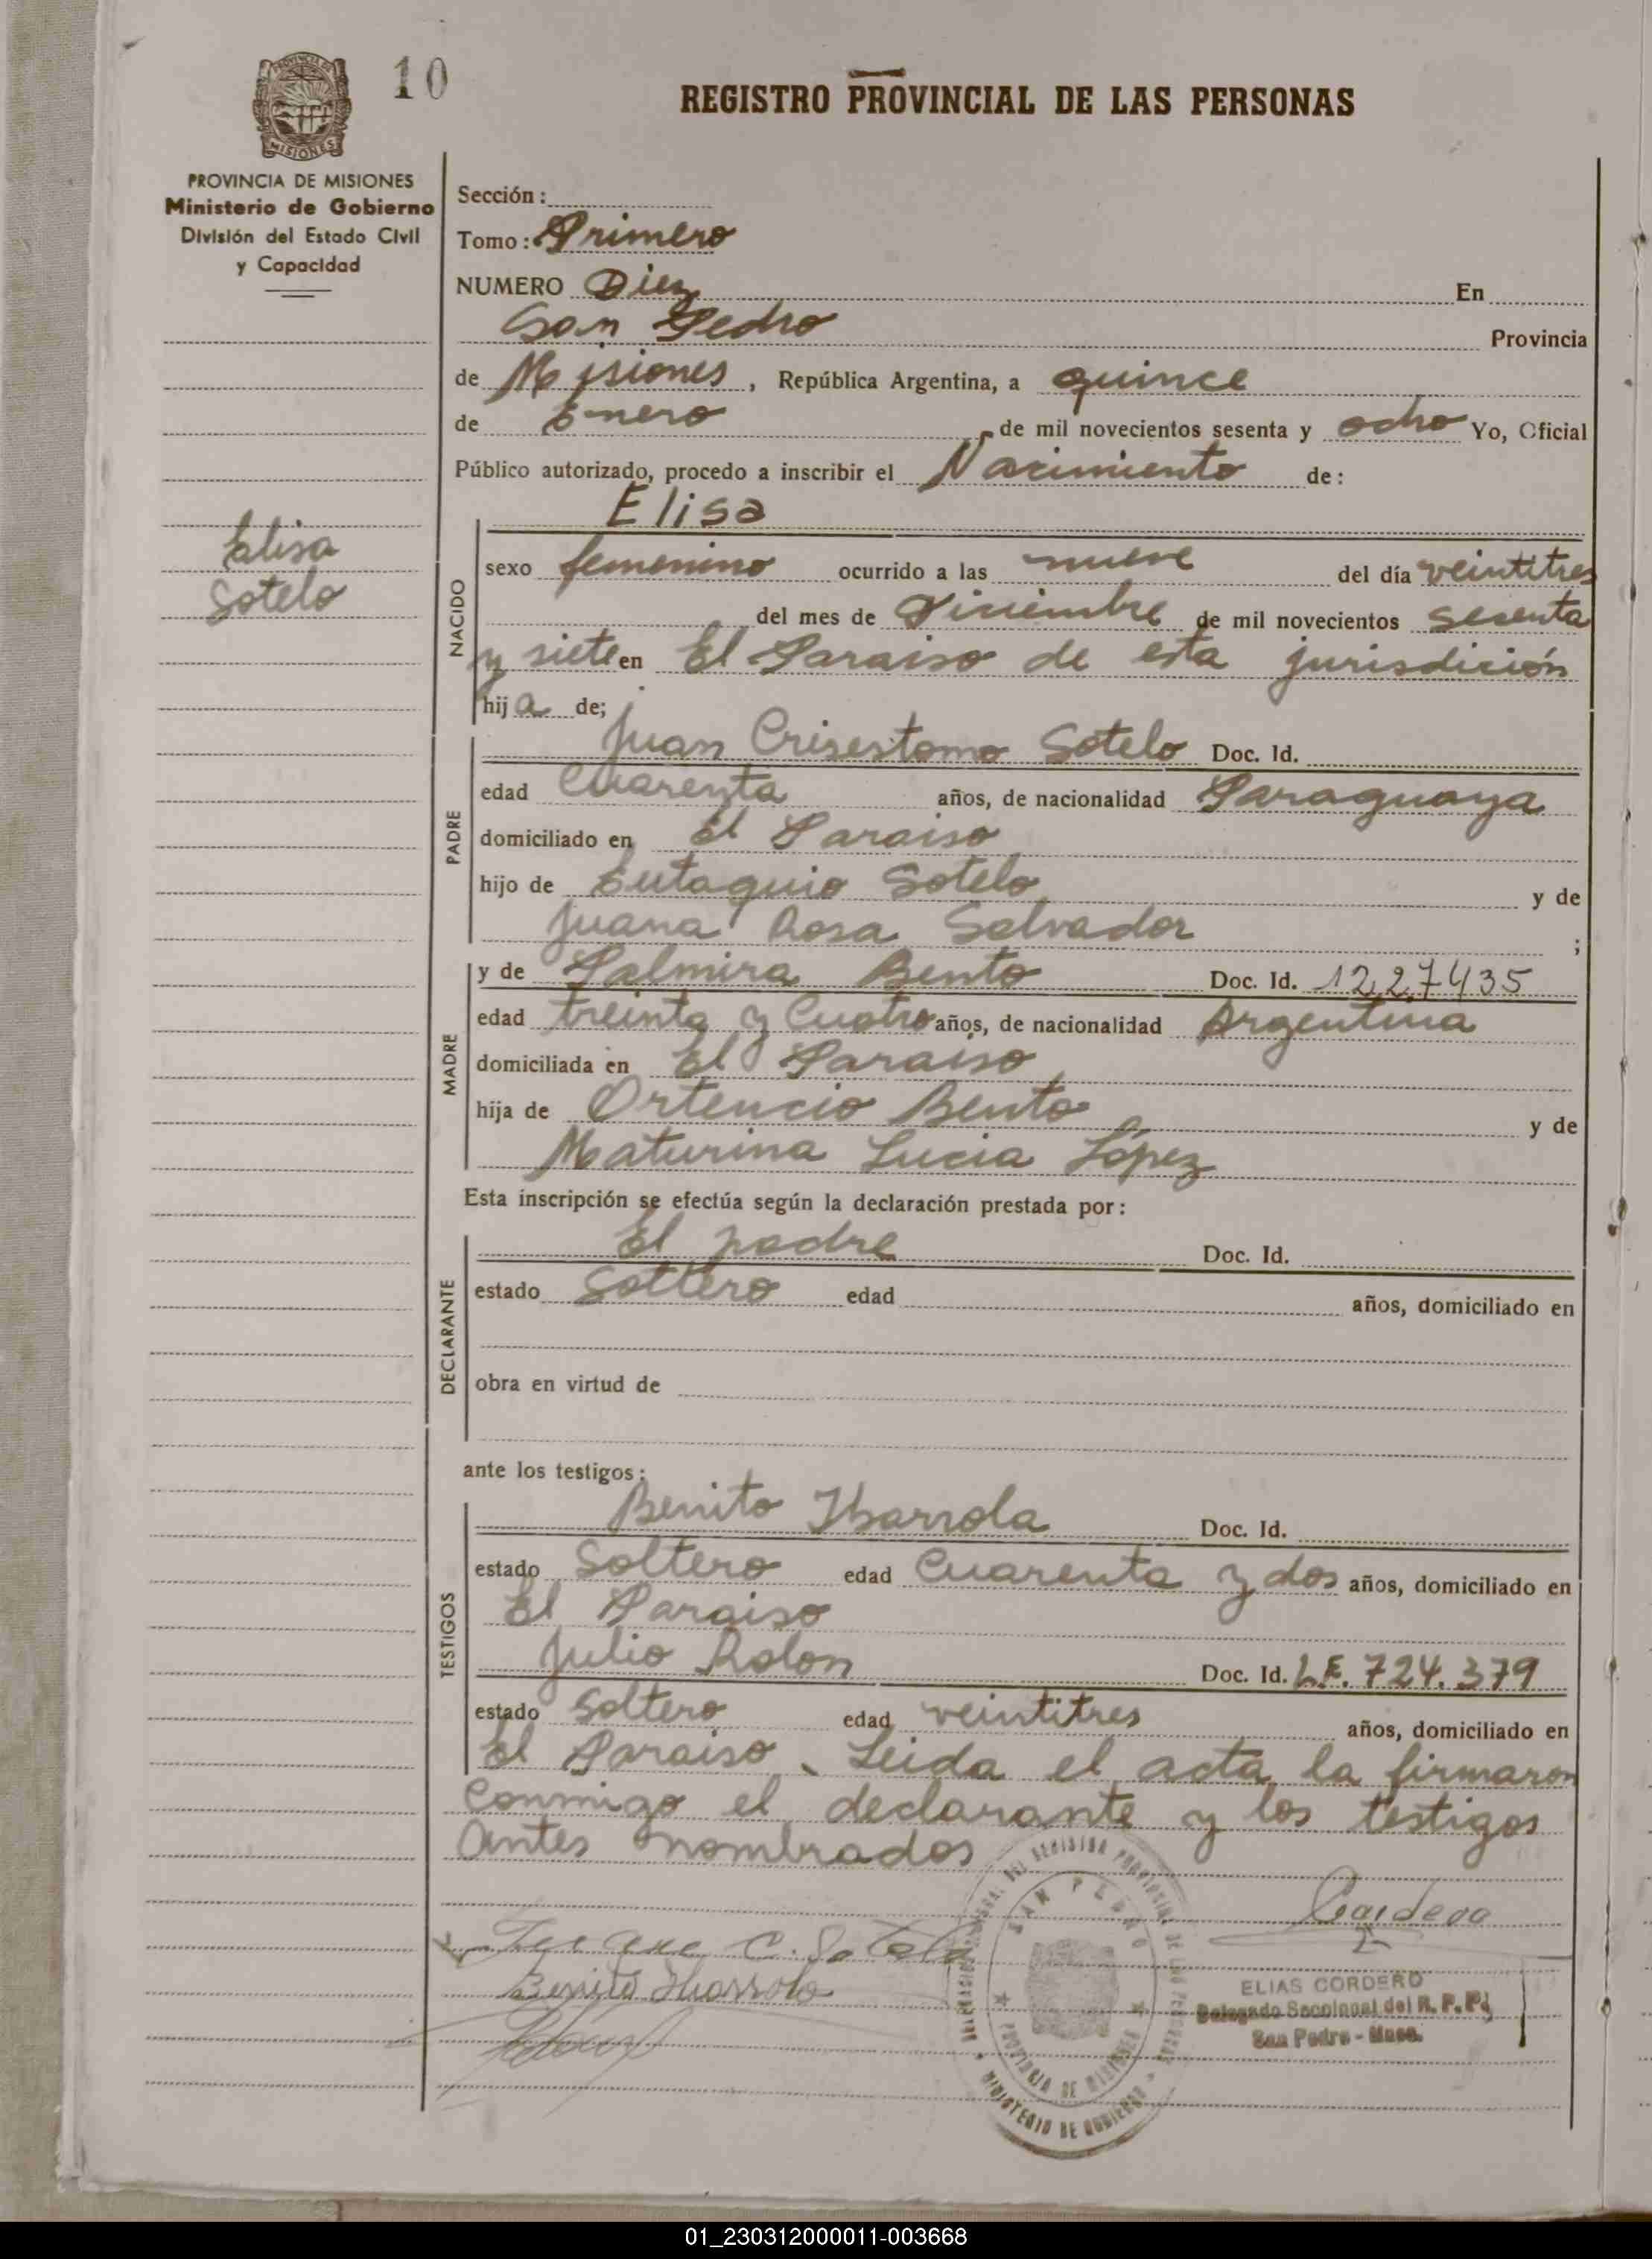 10
REGISTRO PROVINCIAL DE LAS PERSONAS
PROVINCIA DE MISIONES
Ministerio de Gobierno
División del Estado Civil
y Capacidad
Elisa
Sotelo
Sección :
Tomo : Primero
NUMERO Diez En
San Pedro Provincia
de Misiones, República Argentina, a quince
de Enero de mil novecientos sesenta y ocho Yo, Oficial
Público autorizado, procedo a inscribir el Nacimiento de :
NACIDO
Elisa
sexo femenino ocurrido a las nueve del día veintitres
del mes de Diciembre de mil novecientos sesenta
y siete en El Paraiso de esta jurisdición
hija de;
PADRE
Juan Crisestomo Sotelo Doc. Id.
edad Cuarenta años, de nacionalidad Paraguaya
domiciliado en El Paraiso
hijo de Eutaquio Sotelo y de
Juana Rosa Salvador ;
MADRE
y de Palmira Bento Doc. Id. 1227435
edad treinta y Cuatro años, de nacionalidad Argentina
domiciliada en El Paraiso
hija de Ortencio Bento y de
Maturina Lucia López
Esta inscripción se efectúa según la declaración prestada por :
DECLARANTE
El padre Doc. Id.
estado Soltero edad años, domiciliado en
obra en virtud de
ante los testigos :
TESTIGOS
Benito Ibarrola Doc. Id.
estado Soltero edad Cuarenta y dos años, domiciliado en
El Paraiso
Julio Rolon Doc. Id. LE. 724.379
estado Soltero edad veintitres años, domiciliado en
El Paraiso. Leida el acta la firmaron
Conmigo el declarante y los testigos
antes nombrados
C. Sotelo
Benito Ibarrola
SAN PEDRO
PROVINCIA DE MISIONES
MINISTERIO DE GOBIERNO
ELIAS CORDERO
Delegado Seccional del R. P. P.
San Pedro - Mnes.
01_230312000011-003668